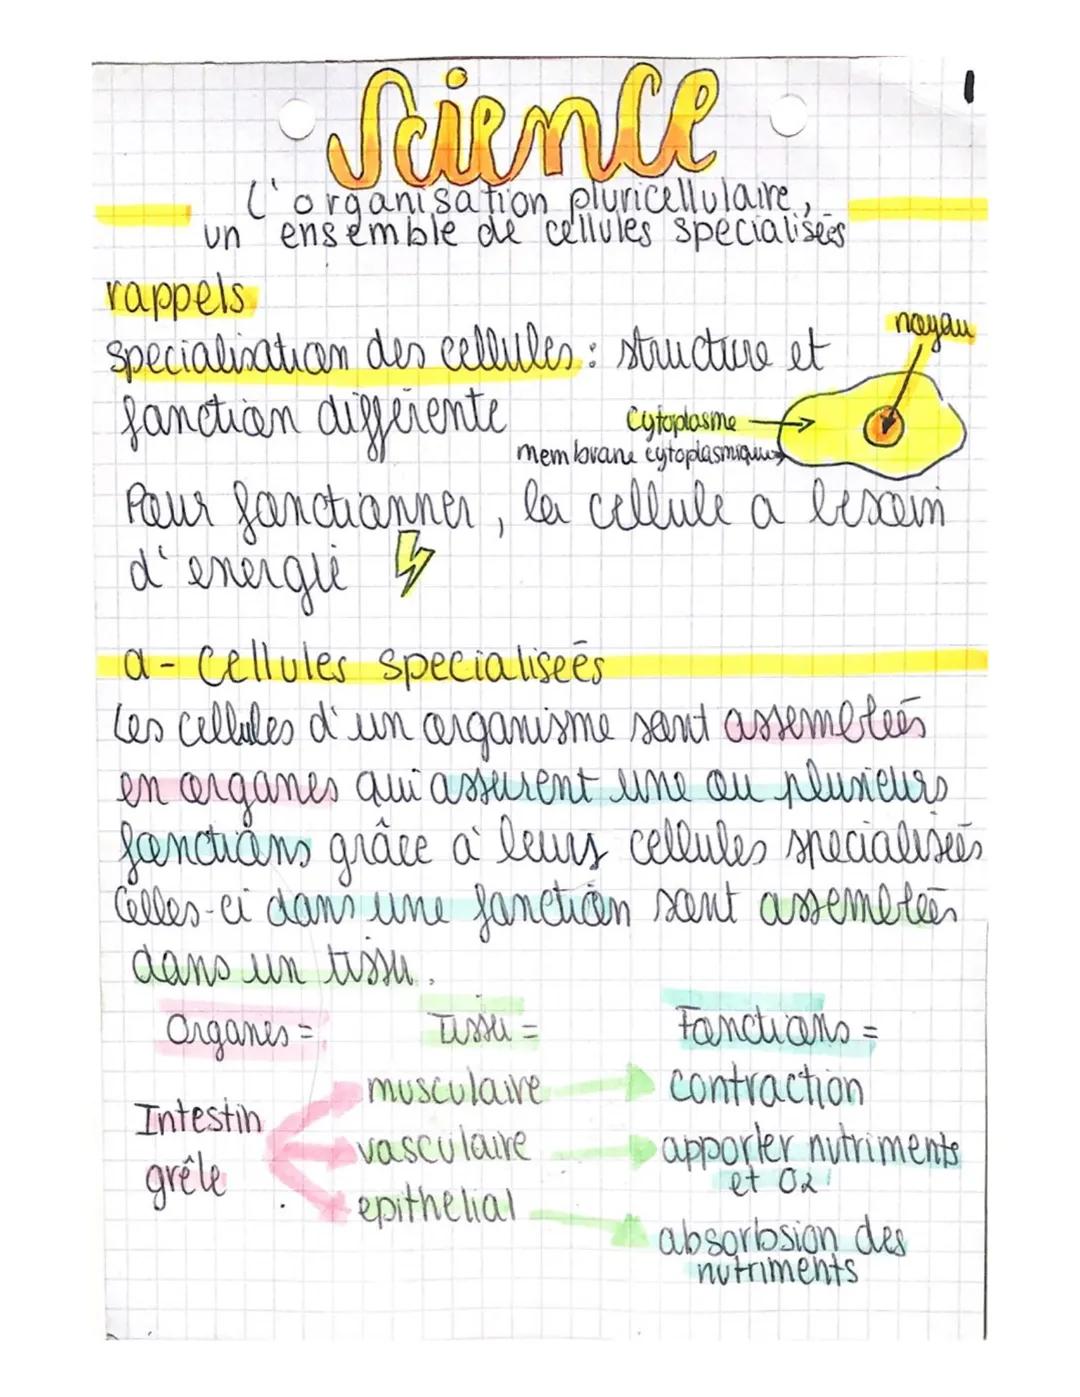 Science
1
L'organisation pluricellulaire,
un ensemble de cellules specialiseés
rappels
specialisation des cellules : structure et
fonction différente
noyau
Cytoplasme
membrane cytoplasmique
Pour fonctionner, la cellule a besoin
d'energie
a - Cellules specialiseés
Les cellules d'un organisme sont assembleés
en organes qui assurent une ou plusieurs
fonctions grâce à leurs cellules specialiseés
Celles-ci dans une fonction sont assembleés
dans un tissu.
Organes = Tissu = Fonctions =
musculaire contraction
Intestin
grêle
vasculaire apporter nutriments
et O2
epithelial absorbsion des
nutriments